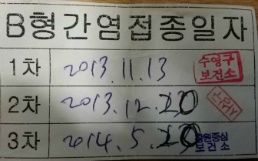 B형간염접종일자
1차 2013.11.13 수영구 보건소
2차 2013.12.20
3차 2014.5.20 보건소